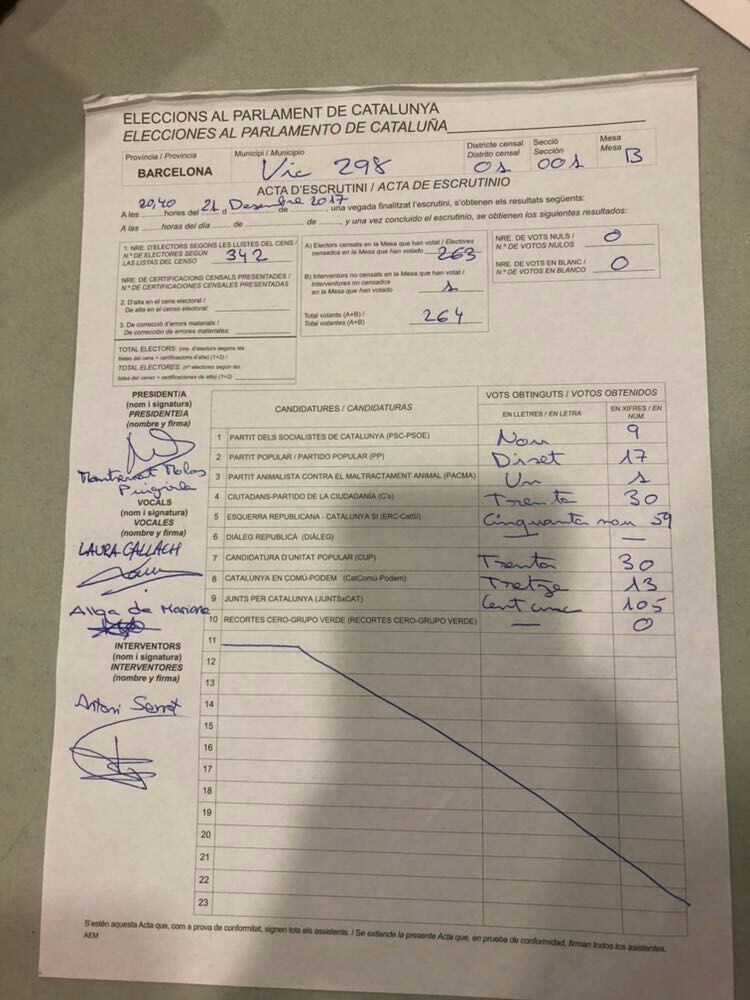 ELECCIONS AL PARLAMENT DE CATALUNYA
ELECCIONES AL PARLAMENTO DE CATALUÑA
Província / Provincia
BARCELONA
Municipi / Municipio
Vic 298
Districte censal
Distrito censal
01
Secció
Sección
001
Mesa
Mesa
B
ACTA D'ESCRUTINI / ACTA DE ESCRUTINIO
A les 20,40 hores del 21 d Desembre de 2017, una vegada finalitzat l'escrutini, s'obtenen els resultats següents:
A las hores del día de de , y una vez concluido el escrutinio, se obtienen los siguientes resultados:
1. NRE. D'ELECTORS SEGONS LES LLISTES DEL CENS /
N.º DE ELECTORES SEGÚN
LAS LISTAS DEL CENSO 342
NRE. DE CERTIFICACIONS CENSALS PRESENTADES /
N.º DE CERTIFICACIONES CENSALES PRESENTADAS
2. D'alta en el cens electoral /
De alta en el censo electoral:
3. De correcció d'errors materials /
De corrección de errores materiales:
TOTAL ELECTORS: (nre. d'electors segons les
llistes del cens + certificacions d'alta) (1+2) /
TOTAL ELECTORES: (nº electores según las
listas del censo + certificaciones de alta) (1+2)
A) Electors censats en la Mesa que han votat / Electores
censados en la Mesa que han votado 263
B) Interventors no censats en la Mesa que han votat /
Interventores no censados
en la Mesa que han votado 1
Total votants (A+B) /
Total votantes (A+B) 264
NRE. DE VOTS NULS /
N.º DE VOTOS NULOS 0
NRE. DE VOTS EN BLANC /
N.º DE VOTOS EN BLANCO 0
PRESIDENT/A
(nom i signatura)
PRESIDENTE/A
(nombre y firma)
Montserrat Molas
VOCALS
(nom i signatura)
VOCALES
(nombre y firma)
LAURA GALLACH
INTERVENTORS
(nom i signatura)
INTERVENTORES
(nombre y firma)
Antoni Serrat
CANDIDATURES / CANDIDATURAS
VOTS OBTINGUTS / VOTOS OBTENIDOS
EN LLETRES / EN LETRA
EN XIFRES / EN NÚM.
1 PARTIT DELS SOCIALISTES DE CATALUNYA (PSC-PSOE) Nou 9
2 PARTIT POPULAR / PARTIDO POPULAR (PP) Diset 17
3 PARTIT ANIMALISTA CONTRA EL MALTRACTAMENT ANIMAL (PACMA) Un 1
4 CIUTADANS-PARTIDO DE LA CIUDADANÍA (C's) Trenta 30
5 ESQUERRA REPUBLICANA - CATALUNYA SI (ERC-CatSí) Cinquanta nou 59
6 DIÀLEG REPUBLICÀ (DIÀLEG) — —
7 CANDIDATURA D'UNITAT POPULAR (CUP) Trenta 30
8 CATALUNYA EN COMÚ-PODEM (CatComú-Podem) Tretze 13
9 JUNTS PER CATALUNYA (JUNTSxCAT) Cent cinc 105
10 RECORTES CERO-GRUPO VERDE (RECORTES CERO-GRUPO VERDE) — 0
11
12
13
14
15
16
17
18
19
20
21
22
23
S'estén aquesta Acta que, com a prova de conformitat, signen tots els assistents. / Se extiende la presente Acta que, en prueba de conformidad, firman todos los asistentes.
AEM